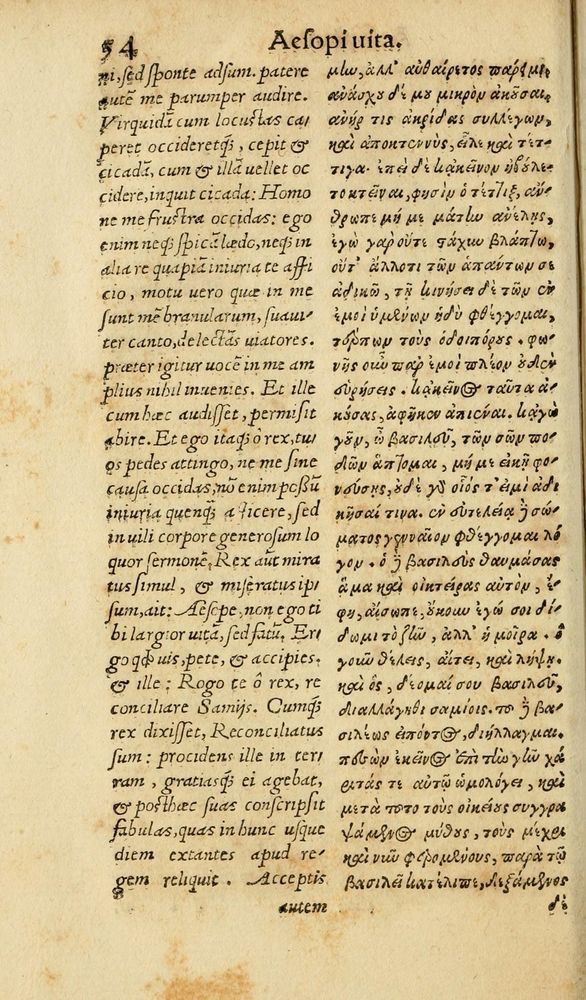 54 Aesopi uita.
ni, sed sponte adsum. patere
autē me parumper audire.
Vir quidā cum locustas ca/
peret occideretq́;, cepit &
cicadā, cum & illā uellet oc
cidere, inquit cicada: Homo
ne me frustra occidas: ego
enim neq; spicā laedo, neq; in
alia re quapiā iniuria te affi
cio, motu uero quae in me
sunt mēbranularum, suaui/
ter canto, delectās uiatores.
praeter igitur uocē in me am
plius nihil inuenies. Et ille
cum haec audisset, permisit
abire. Et ego itaq; ô rex, tu/
os pedes attingo, ne me sine
causa occidas, nō enim possū
iniuria quenq; afficere, sed
in uili corpore generosum lo
quor sermonē. Rex aūt mira
tus simul, & miseratus ip/
sum, ait: Aesope, non ego ti
bi largior uitā, sed fatū. Er/
go qđ uis, pete, & accipies.
& ille: Rogo te ô rex, re
conciliare Samijs. Cumq́;
rex dixisset, Reconciliatus
sum: procidens ille in ter/
ram, gratiasq́; ei agebat,
& posthaec suas conscripsit
fabulas, quas in hunc usque
diem extantes apud re/
gem reliquit. Acceptis
autem
μίω, ἀλλ' αὐθαίρετος πάρειμι.
ἀνάσχου δέ μου μικρὸν ἀκοῦσαι.
ἀνήρ τις ἀκρίδας συλλέγων,
καὶ ἀποκτεννὺς, εἷλε καὶ τέτ/
τιγα· ἐπεὶ δὲ κἀκεῖνον ἠβούλε/
το κτεῖναι, φησὶν ὁ τέτ]ιξ, ἄν/
θρωπε μή με μάτην ἀνέλῃς,
ἐγὼ γὰρ οὔτε στάχυν βλάπτω,
οὔτ' ἄλλο τι τῶν ἁπάντων σε
ἀδικῶ, τῇ κινήσει δὲ τῶν ἐν
ἐμοὶ ὑμένων ἡδὺ φθέγγομαι,
τέρπων τοὺς ὁδοιπόρους. φω/
νῆς οὖν παρ' ἐμοὶ πλέον οὐδὲν
εὑρήσεις. κἀκεῖνος ταῦτα ἀ/
κούσας, ἀφῆκεν ἀπιέναι. κἀγὼ
γοῦν, ὦ βασιλεῦ, τῶν σῶν πο/
δῶν ἅπτομαι, μή με εἰκῆ φο/
νεύσῃς, οὐδὲ γὰρ οἷός τ' εἰμὶ ἀδι/
κῆσαί τινα. ἐν εὐτελείᾳ δὲ σώ/
ματος γενναῖον φθέγγομαι λό/
γον. ὁ δὲ βασιλεὺς θαυμάσας
ἅμα καὶ οἰκτείρας αὐτὸν, ἔ/
φη, αἴσωπε, οὐκ ἐγώ σοι δί/
δωμι τὸ ζῆν, ἀλλ' ἡ μοῖρα. ὃ
γοῦν θέλεις, αἴτει, καὶ λήψῃ.
καὶ ὃς, δέομαί σου βασιλεῦ,
διαλλάγηθι σαμίοις. τοῦ δὲ βα/
σιλέως εἰπόντος, διήλλαγμαι.
πεσὼν ἐκεῖνος ἐπὶ τὴν γῆν χά
ριτάς τε αὐτῷ ὡμολόγει, καὶ
μετὰ τοῦτο τοὺς οἰκείους συγγρα
ψάμενος μύθους, τοὺς μέχρι
καὶ νῦν φερομένους, παρὰ τῷ
βασιλεῖ κατέλιπε, δεξάμενος
δὲ